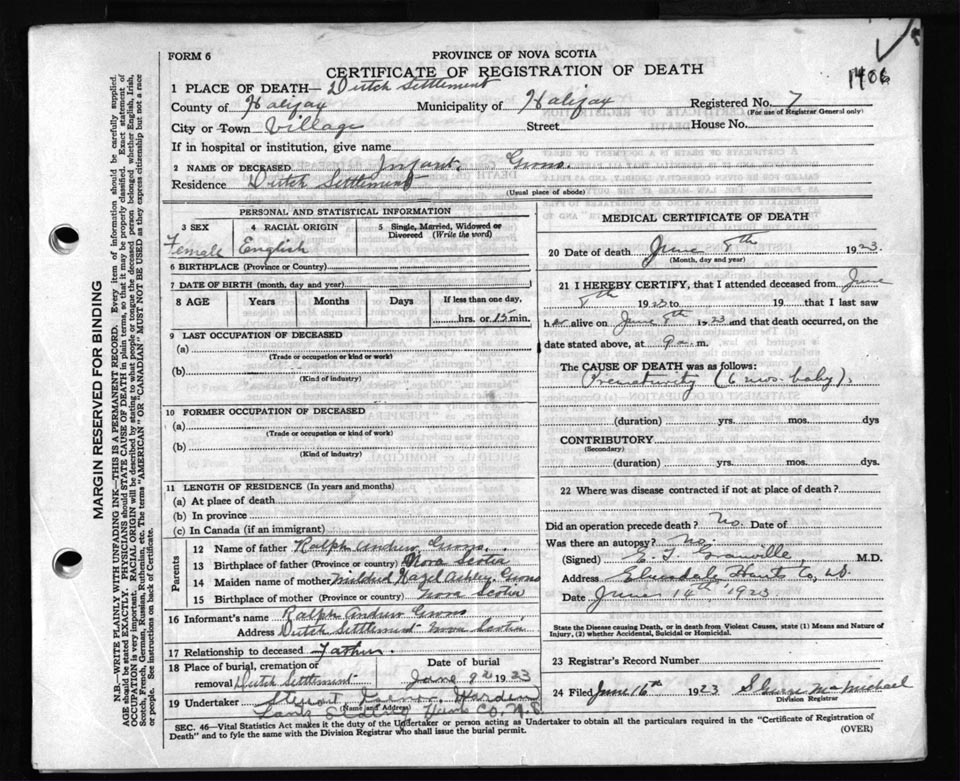 1406
FORM 6
PROVINCE OF NOVA SCOTIA
CERTIFICATE OF REGISTRATION OF DEATH
1 PLACE OF DEATH— Dutch Settlement
County of Halifax Municipality of Halifax Registered No. 7
(For use of Registrar General only)
City or Town Village Street House No.
If in hospital or institution, give name
2 NAME OF DECEASED Infant
Residence Dutch Settlement
(Usual place of abode)
PERSONAL AND STATISTICAL INFORMATION
3 SEX 4 RACIAL ORIGIN 5 Single, Married, Widowed or Divorced (Write the word)
Female English
6 BIRTHPLACE (Province or Country)
7 DATE OF BIRTH (month, day and year)
8 AGE Years Months Days If less than one day,
hrs. or 15 min.
9 LAST OCCUPATION OF DECEASED
(a)
(Trade or occupation or kind of work)
(b)
(Kind of industry)
10 FORMER OCCUPATION OF DECEASED
(a)
(Trade or occupation or kind of work)
(b)
(Kind of industry)
11 LENGTH OF RESIDENCE (In years and months)
(a) At place of death
(b) In province
(c) In Canada (if an immigrant)
Parents
12 Name of father Ralph Andrew
13 Birthplace of father (Province or Country) Nova Scotia
14 Maiden name of mother Mildred Hazel Ashley
15 Birthplace of mother (Province or country) Nova Scotia
16 Informant's name Ralph Andrew
Address Dutch Settlement Nova Scotia
17 Relationship to deceased Father.
18 Place of burial, cremation or Date of burial
removal Dutch Settlement June 9 1923
19 Undertaker
(Name and Address)
Hants Co, N.S.
MEDICAL CERTIFICATE OF DEATH
20 Date of death June 8th 1923.
(Month, day and year)
21 I HEREBY CERTIFY, that I attended deceased from June
8th 1923 to 19 that I last saw
her alive on June 8th 1923 and that death occurred, on
date stated above, at 9 m.
The CAUSE OF DEATH was as follows:
Prematurity (6 mos. baby).
(duration) yrs. mos. dys
CONTRIBUTORY
(Secondary)
(duration) yrs. mos. dys.
22 Where was disease contracted if not at place of death?
Did an operation precede death? No. Date of
Was there an autopsy? No.
(Signed) Granville M.D.
Address Hants Co,
Date June 14th, 1923
State the Disease causing Death, or in death from Violent Causes, state (1) Means and Nature of
Injury, (2) whether Accidental, Suicidal or Homicidal.
23 Registrar's Record Number
24 Filed June 16th 1923 McMichael
Division Registrar
SEC. 46—Vital Statistics Act makes it the duty of the Undertaker or person acting as Undertaker to obtain all the particulars required in the "Certificate of Registration of
Death" and to fyle the same with the Division Registrar who shall issue the burial permit. (OVER)
MARGIN RESERVED FOR BINDING
N.B.—WRITE PLAINLY WITH UNFADING INK—THIS IS A PERMANENT RECORD. Every item of information should be carefully supplied.
AGE should be stated EXACTLY. PHYSICIANS should STATE CAUSE OF DEATH in plain terms, so that it may be properly classified. Exact statement of
OCCUPATION is very important. RACIAL ORIGIN will be described by stating to what people or tongue the deceased person belonged whether English, Irish,
Scotch, French, German, Russian, Ruthenian, etc. The terms "AMERICAN" OR "CANADIAN" MUST NOT BE USED as they express citizenship but not a race
or people. See instructions on back of Certificate.